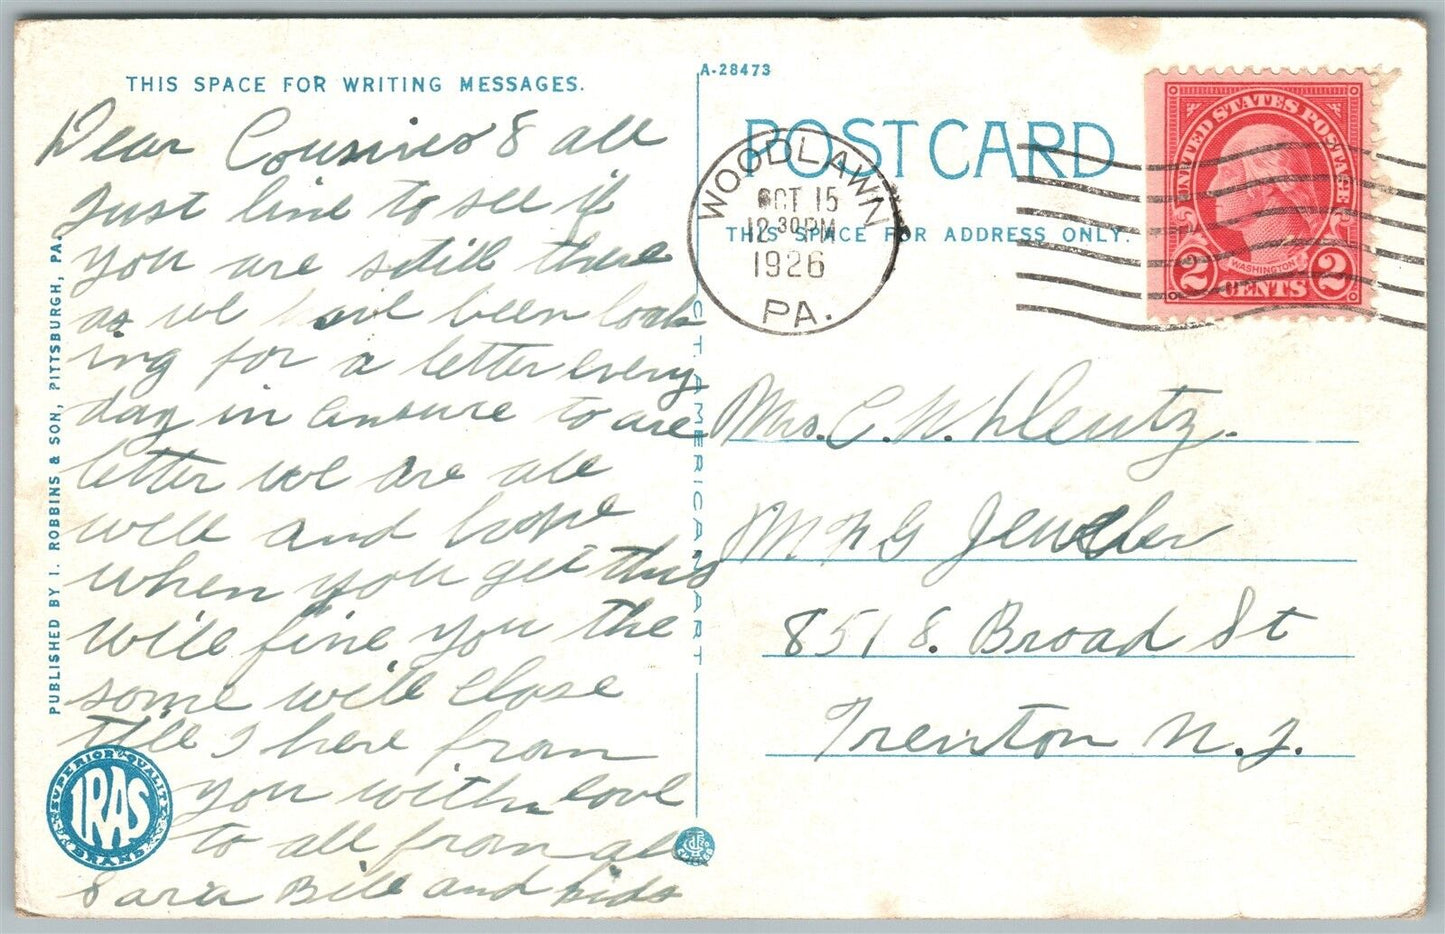 THIS SPACE FOR WRITING MESSAGES.
Dear Cousines & all
Just line to see if
you are still there
as we have been look
ing for a letter every
day in ansure to are
letter we are all
well and hope
when you get this
will fine you the
some will close
till I here from
you with love
to all from all
Sara Bill and kids
PUBLISHED BY I. ROBBINS & SON, PITTSBURGH, PA.
SUPERIOR QUALITY
IRAS
BRAND
A-28473
POST CARD
THIS SPACE FOR ADDRESS ONLY.
WOODLAWN
OCT 15
12 30 PM
1926
PA.
UNITED STATES POSTAGE
WASHINGTON
2 CENTS 2
C.T. AMERICAN ART
Mrs. C. W.
Jeweler
851 S. Broad St
Trenton N. J.